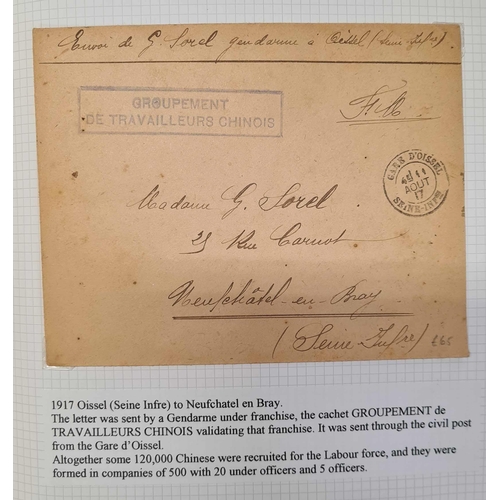 Envoi de G. Sorel gendarme à Oissel (Seine Infre)
GROUPEMENT
DE TRAVAILLEURS CHINOIS
F.M
GARE D'OISSEL
AOUT
17
SEINE-INFRE
Madame G. Sorel
25 Rue Carnot
Neufchâtel-en-Bray
(Seine Infre)
£65
1917 Oissel (Seine Infre) to Neufchatel en Bray.
The letter was sent by a Gendarme under franchise, the cachet GROUPEMENT de
TRAVAILLEURS CHINOIS validating that franchise. It was sent through the civil post
from the Gare d'Oissel.
Altogether some 120,000 Chinese were recruited for the Labour force, and they were
formed in companies of 500 with 20 under officers and 5 officers.